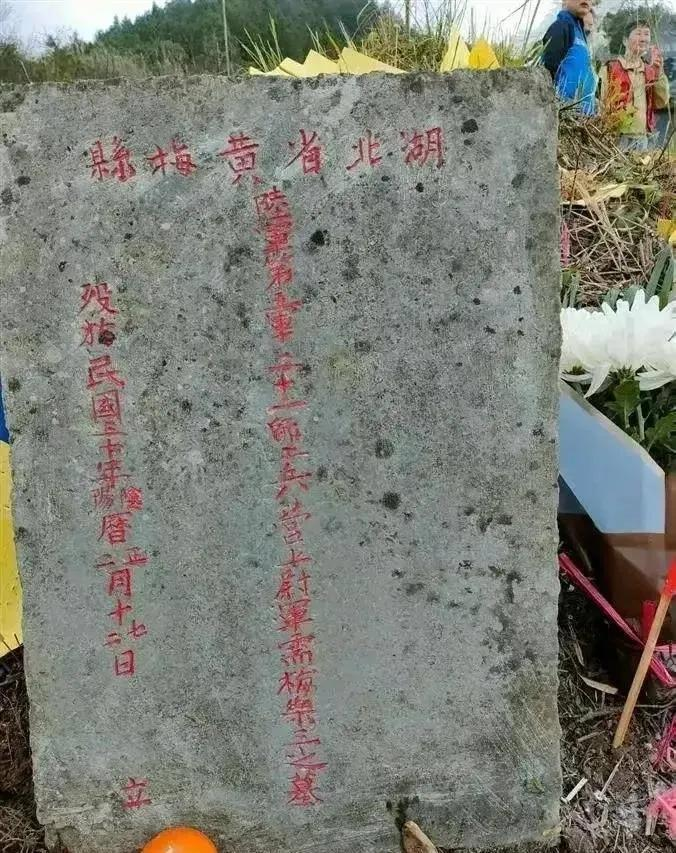 湖北省黃梅縣
陸軍第軍二十一師工兵營上尉軍需梅樂三之墓
殁於民國三十年陰陽曆正二月十七二日
立